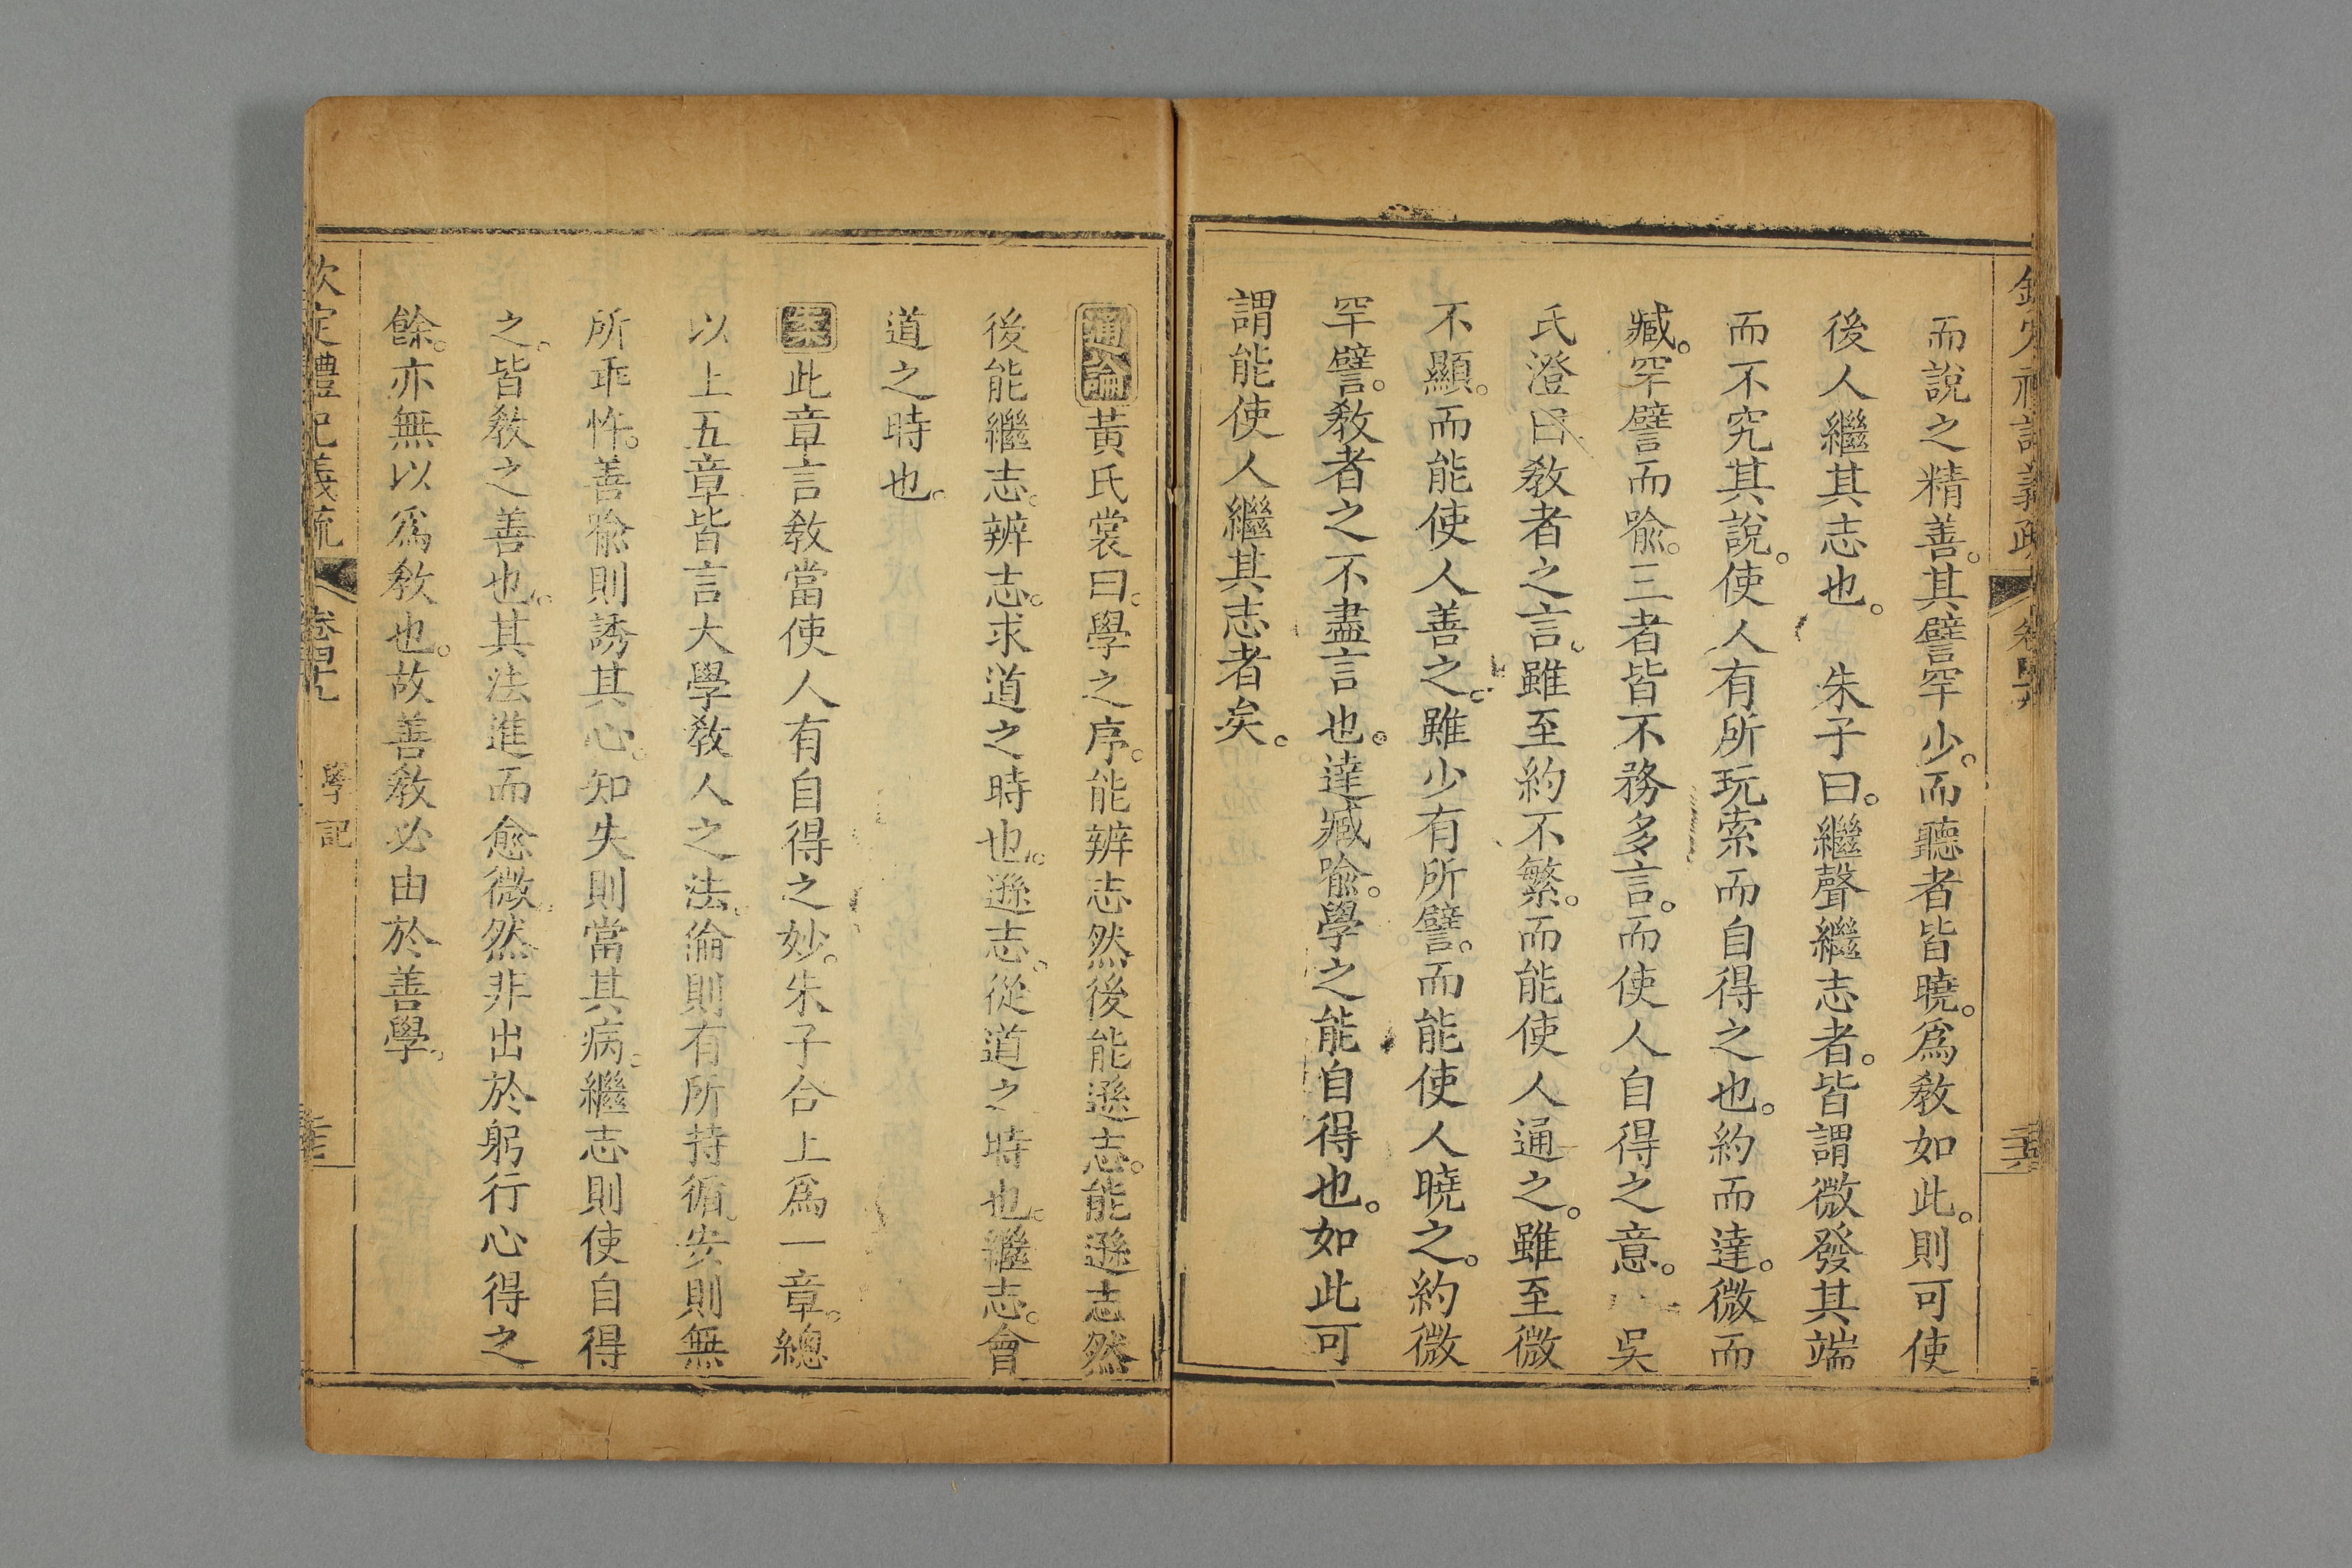 而說之精善。其譬罕少。而聽者皆曉。爲敎如此。則可使
後人繼其志也。　朱子曰。繼聲繼志者。皆謂微發其端
而不究其說。使人有所玩索而自得之也。約而達。微而
臧。罕譬而喩。三者皆不務多言。而使人自得之意。　吳
氏澄曰敎者之言。雖至約不繁。而能使人通之。雖至微
不顯。而能使人善之。雖少有所譬。而能使人曉之。約微
罕譬。敎者之不盡言也。達臧喩。學之能自得也。如此可
謂能使人繼其志者矣。
通論黃氏裳曰。學之序。能辨志然後能遜志。能遜志然
後能繼志。辨志。求道之時也。遜志。從道之時也。繼志。會
道之時也。
案此章言敎當使人有自得之妙。朱子合上爲一章。總
以上五章皆言大學敎人之法。倫則有所持循。安則無
所乖忤。善喩則誘其心。知失則當其病。繼志則使自得
之。皆敎之善也。其法進而愈微。然非出於躬行心得之
餘。亦無以爲敎也。故善敎必由於善學。
欽定禮記義疏　卷四十九　學記